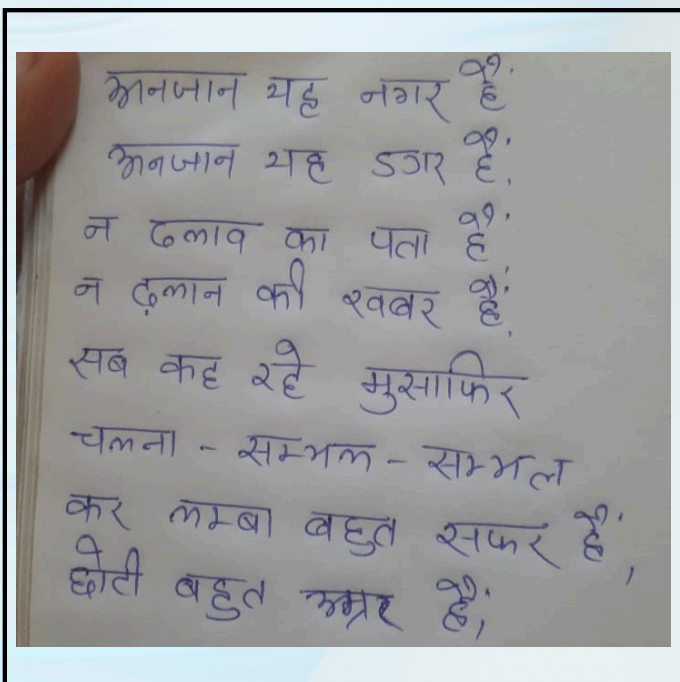 अनजान यह नगर हैं
अनजान यह डगर हैं,
न ढलाव का पता हैं
न ढ़लान की खबर हैं,
सब कह रहे मुसाफिर
चलना - सम्भल - सम्भल
कर लम्बा बहुत सफर हैं,
छोटी बहुत हैं,